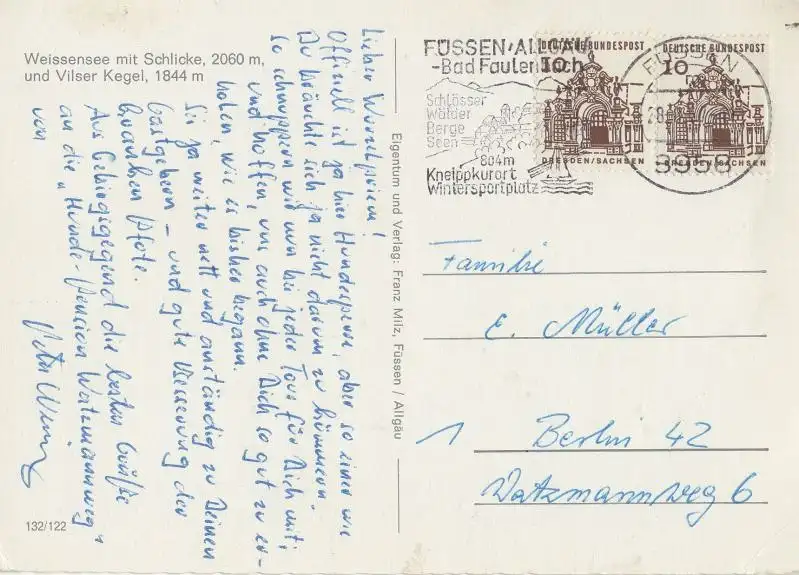 Weissensee mit Schlicke, 2060 m,
und Vilser Kegel, 1844 m
Lieber
Offiziell ist ja hier Hundesperre, aber so einer wie
Du bräuchte sich ja nicht darum zu kümmern.
So schnuppern wir nun bei jeder Tour für Dich mit
und hoffen, uns auch ohne Dich so gut zu er-
holen, wie es bisher begann.
Sei ja weiter nett und anständig zu Deinen
Gastgebern – und gute Besserung der
kranken Pfote.
Aus Gebirgsgegend die besten Grüße
an die "Hunde-Pension Watzmannweg"
von
132/122
Eigentum und Verlag: Franz Milz, Füssen / Allgäu
FÜSSEN/ALLGÄU
-Bad Faulenbach
Schlösser
Wälder
Berge
Seen
804m
Kneippkurort
Wintersportplatz
DEUTSCHE BUNDESPOST
10
DRESDEN/SACHSEN
DEUTSCHE BUNDESPOST
10
DRESDEN/SACHSEN
FÜSSEN
8958
Familie
E. Müller
1 Berlin 42
Watzmannweg 6